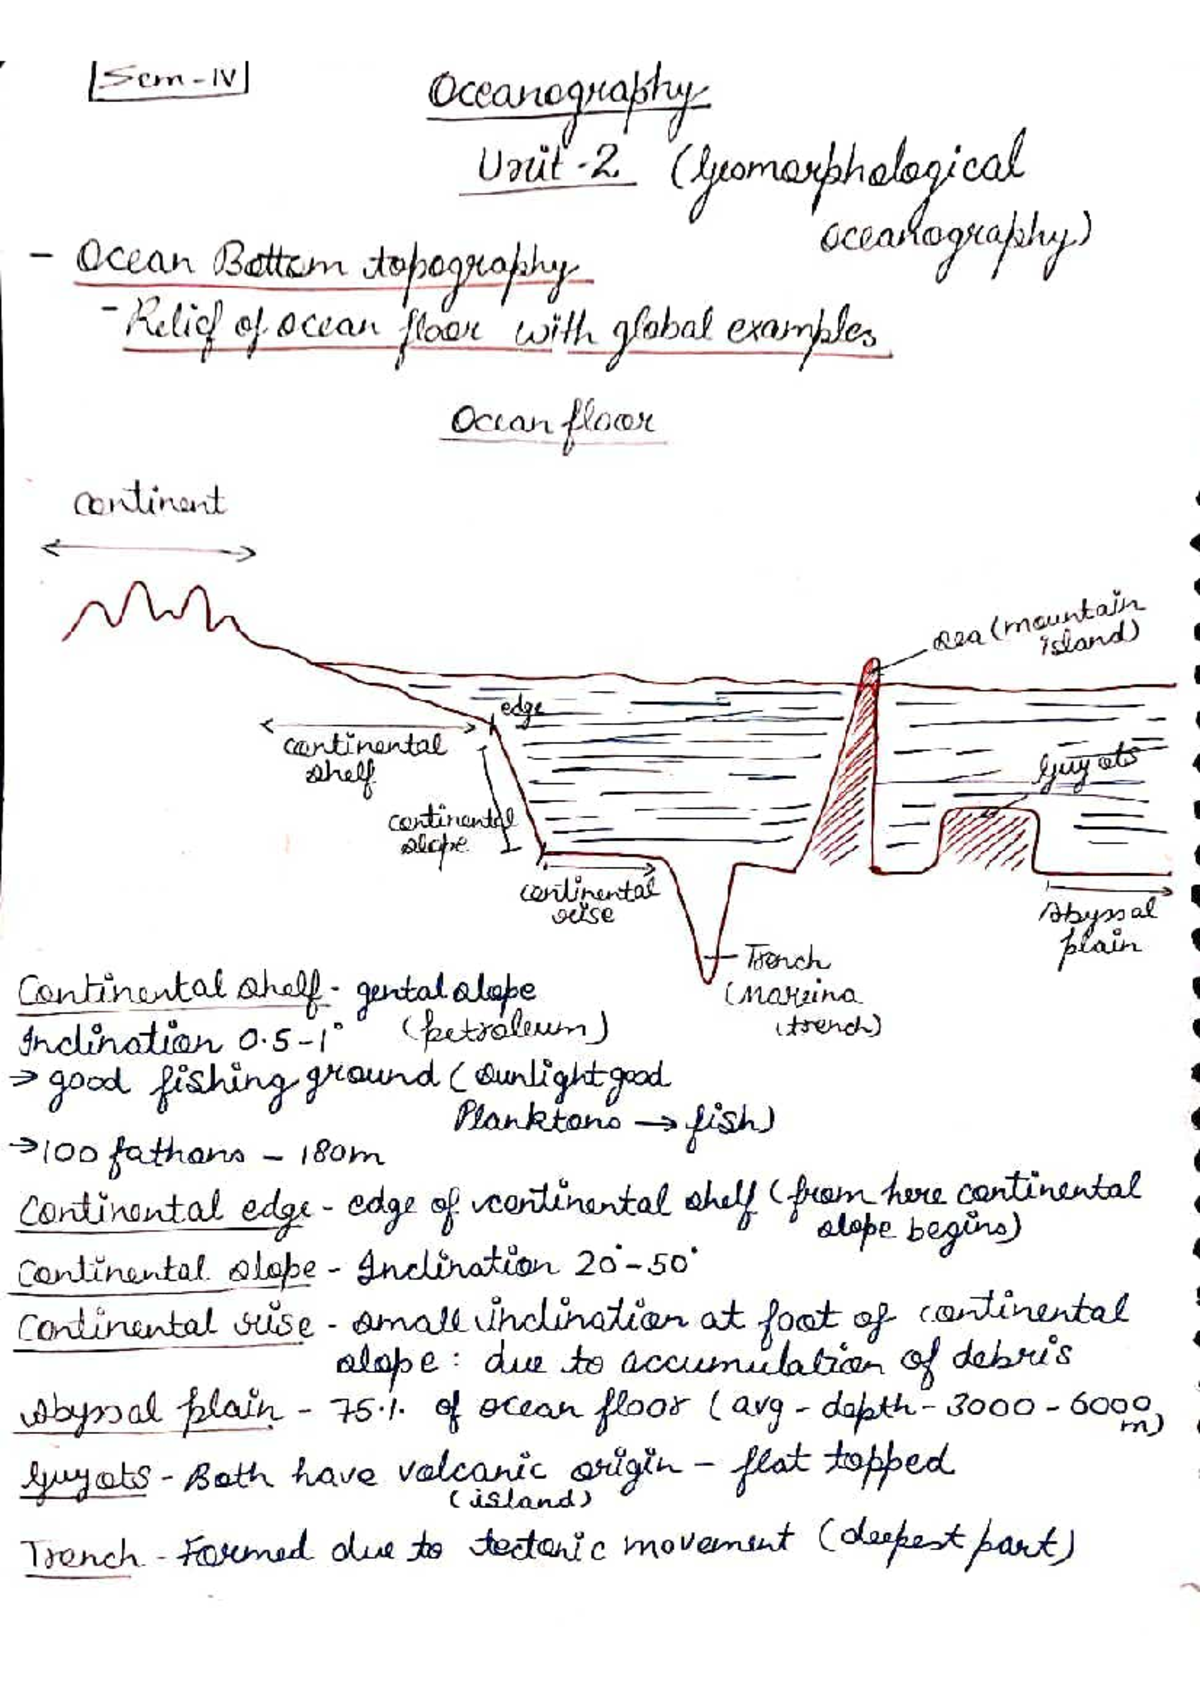 Sem-IV
Oceanography
Unit-2 (Geomorphological
oceanography)
- Ocean Bottom topography
- Relief of ocean floor with global examples
Ocean floor
continent
sea (mountain
island)
edge
continental
shelf
Guyots
continental
slope
continental
rise
Abyssal
plain
Trench
(Marina
trench)
Continental shelf - gental slope
Inclination 0.5-1° (petroleum)
→ good fishing ground (sunlight good
Planktons → fish)
→ 100 fathans - 180m
Continental edge - edge of continental shelf (from here continental
slope begins)
Continental slope - Inclination 20°-50°
Continental rise - small inclination at foot of continental
slope: due to accumulation of debris
Abyssal plain - 75% of ocean floor (avg - depth - 3000 - 6000
m)
Guyots - Both have volcanic origin - flat topped
(island)
Trench - Formed due to tectonic movement (deepest part)